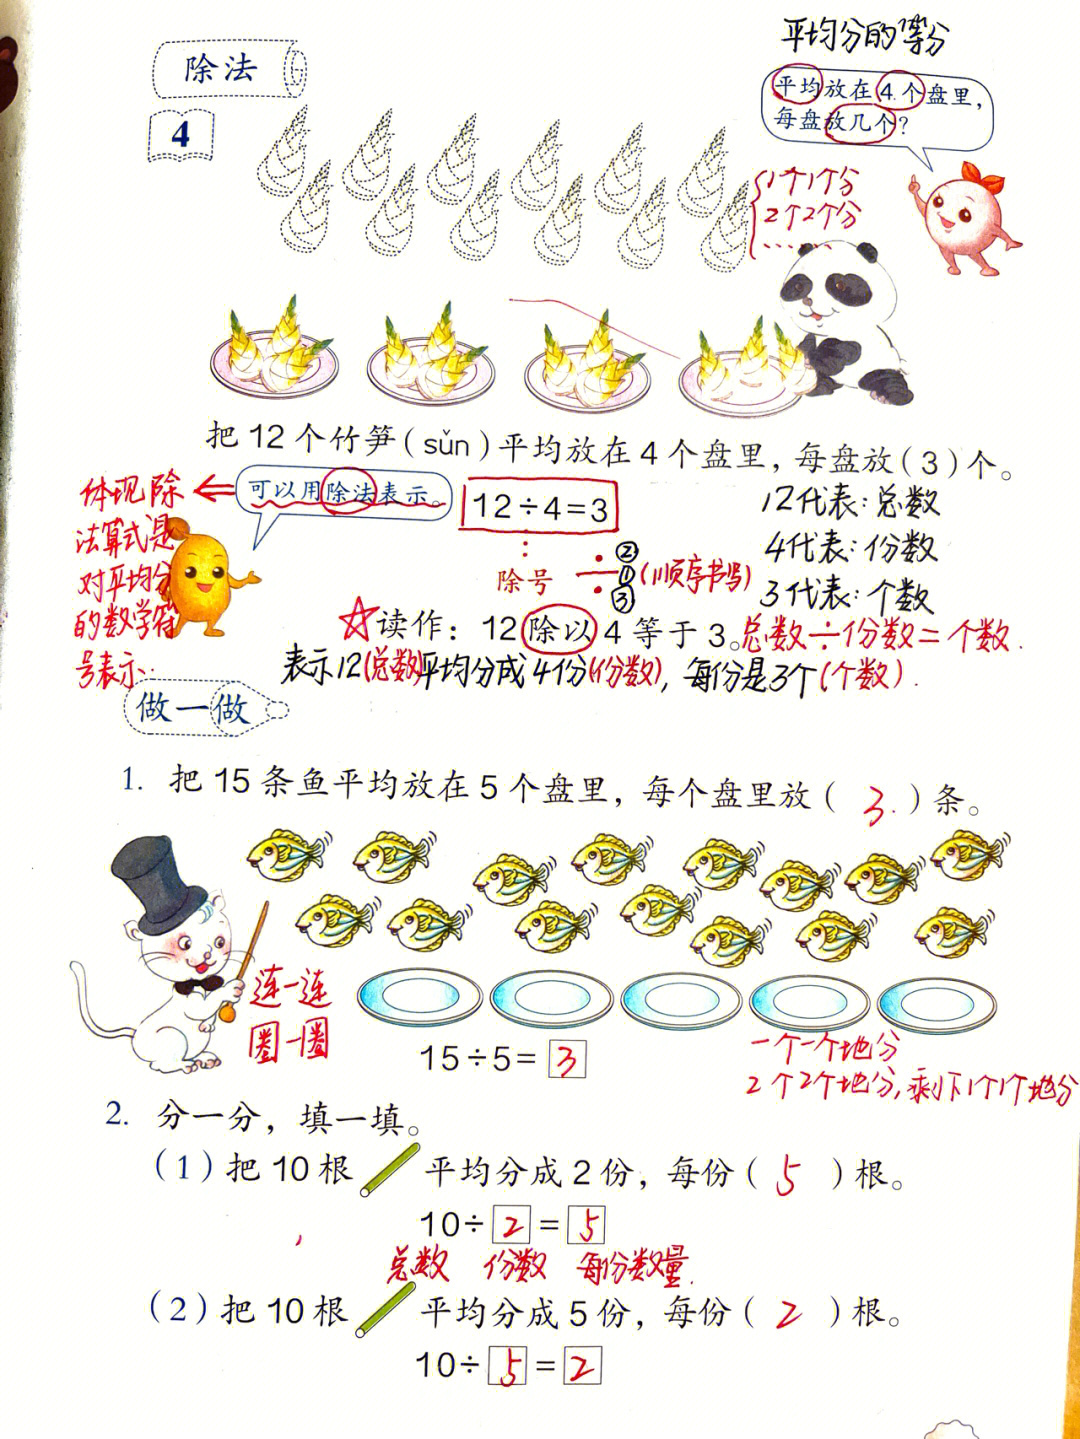 平均分的等分
除法
平均放在4个盘里，
每盘放几个？
4
1个1个分
2个2个分
……
把12个竹笋（sǔn）平均放在4个盘里，每盘放（3）个。
体现除
法算式是
对平均分
的数学符
号表示.
可以用除法表示。
12÷4=3
12代表：总数
4代表：份数
3代表：个数
除号
②
①
③
（顺序书写）
读作：12除以4等于3。总数÷份数=个数.
表示12(总数)平均分成4份(份数)，每份是3个(个数).
做一做
1. 把15条鱼平均放在5个盘里，每个盘里放（3）条。
连一连
圈一圈
15÷5=3
一个一个地分
2个2个地分,剩下1个1个地分
2. 分一分，填一填。
（1）把10根 平均分成2份，每份（5）根。
10÷2=5
总数 份数 每份数量.
（2）把10根 平均分成5份，每份（2）根。
10÷5=2